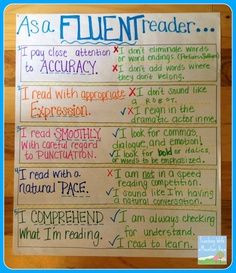 As a FLUENT reader...
I pay close attention
to ACCURACY.
x I don't eliminate words
or word endings
x I don't add words where
they don't belong.
I read with appropriate
Expression.
x I don't sound like
a ROBOT.
x I reign in the
dramatic actor in me.
I read SMOOTHLY,
with careful regard
to PUNCTUATION.
✓ I look for commas,
dialogue, and emotion!
✓ I look for bold or italics,
or words to be emphasized.
I read with a
natural PACE.
x I am not in a speed
reading competition.
✓ I sound like I'm having
a natural conversation.
I COMPREHEND
what I'm reading.
✓ I am always checking
for understand.
✓ I read to learn.
Teaching With
a Mountain View